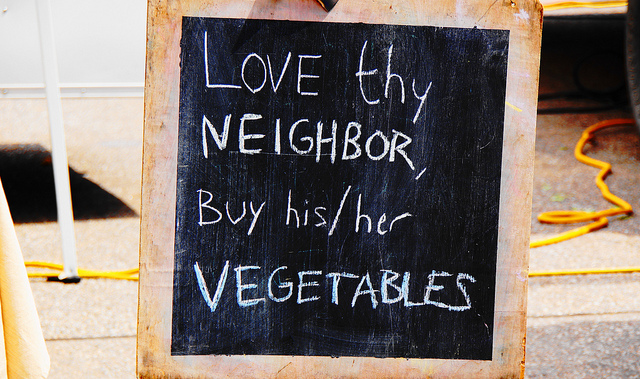 LOVE thy
NEIGHBOR,
Buy his/her
VEGETABLES